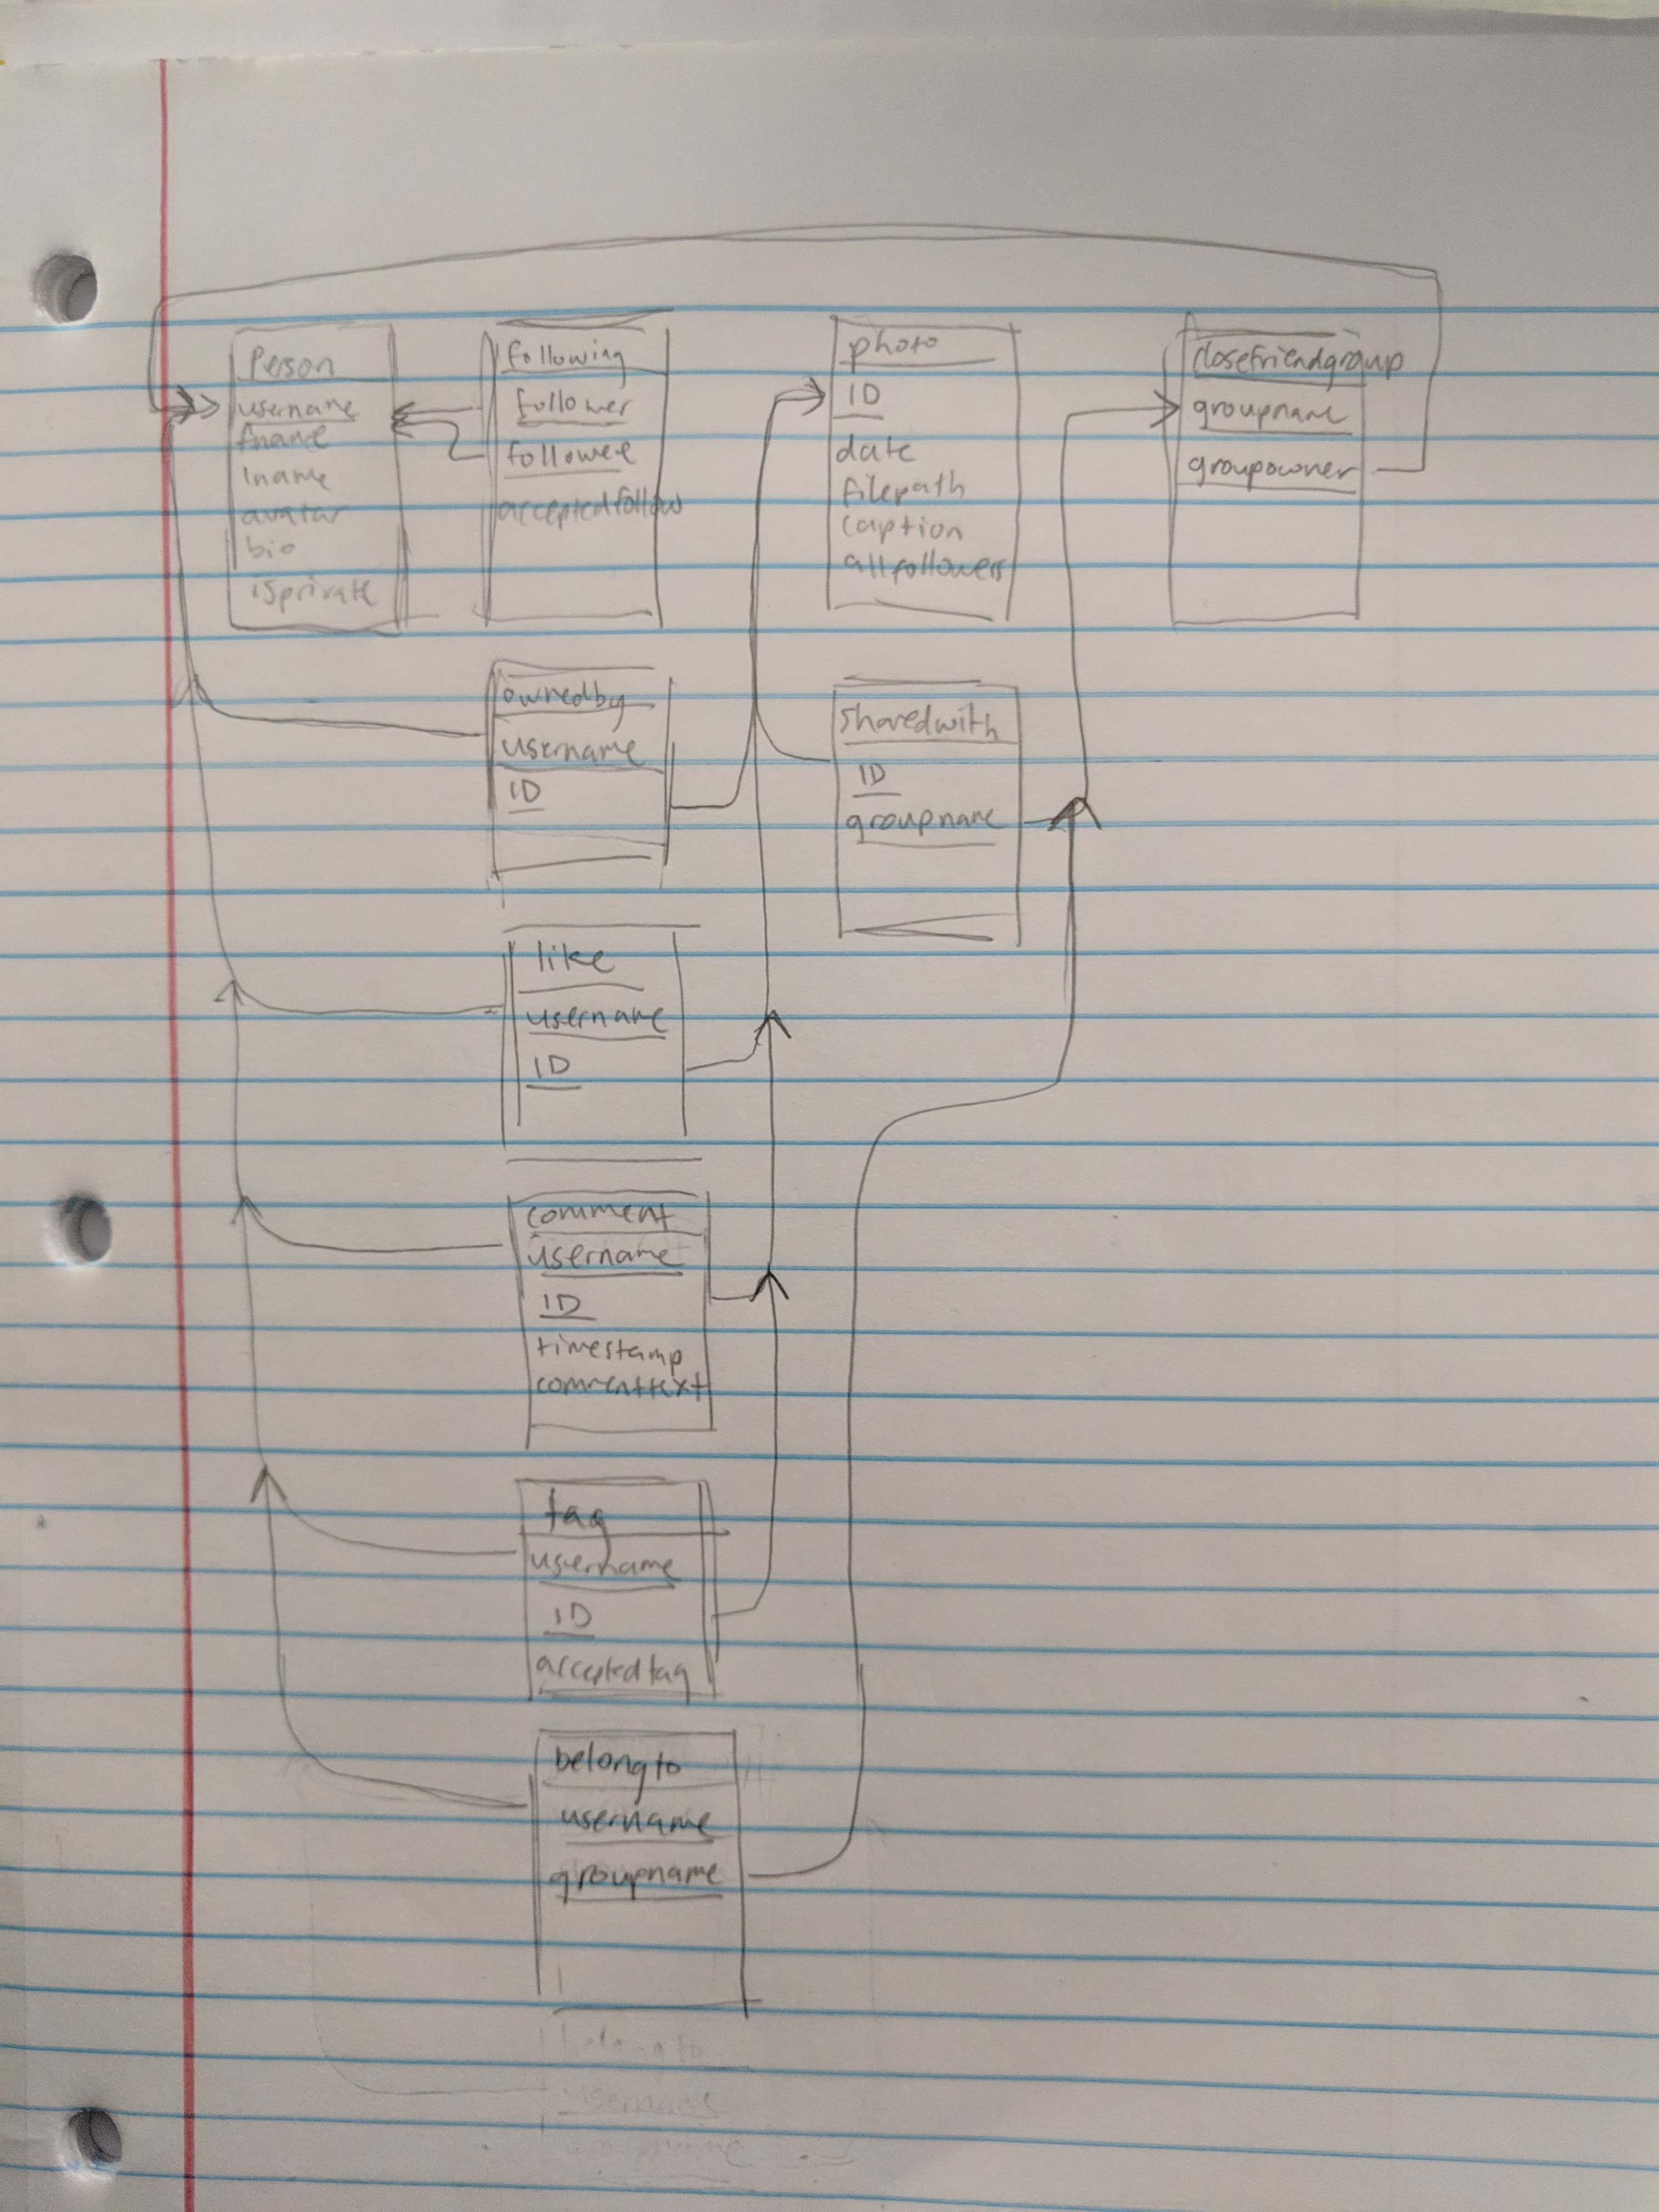 Person
username
fname
lname
avatar
bio
isprivate
following
follower
followee
acceptedfollow
photo
ID
date
filepath
caption
allfollowers
closefriendgroup
groupname
groupowner
ownedby
username
ID
sharedwith
ID
groupname
like
username
ID
comment
username
ID
timestamp
commenttext
tag
username
ID
acceptedtag
belongto
username
groupname
belongto
username
groupname